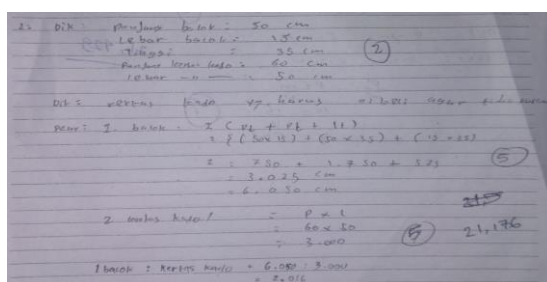 2. Dik Panjang balok : 50 cm
Lebar balok : 15 cm
Tinggi : 35 cm
2
Panjang kertas kado : 60 cm
lebar — " — : 50 cm
Dit : kertas kado yg harus
I. balok
= { (50 x 15) + (50 x 35) + (15 x 35)
5
= 750 + 1.750 + 525
= 3.025 cm
= 6.050 cm
2 kado = P x L
= 60 x 50
= 3.000
5
21,176
1 balok : kertas kado = 6.050 : 3.000
= 2.016